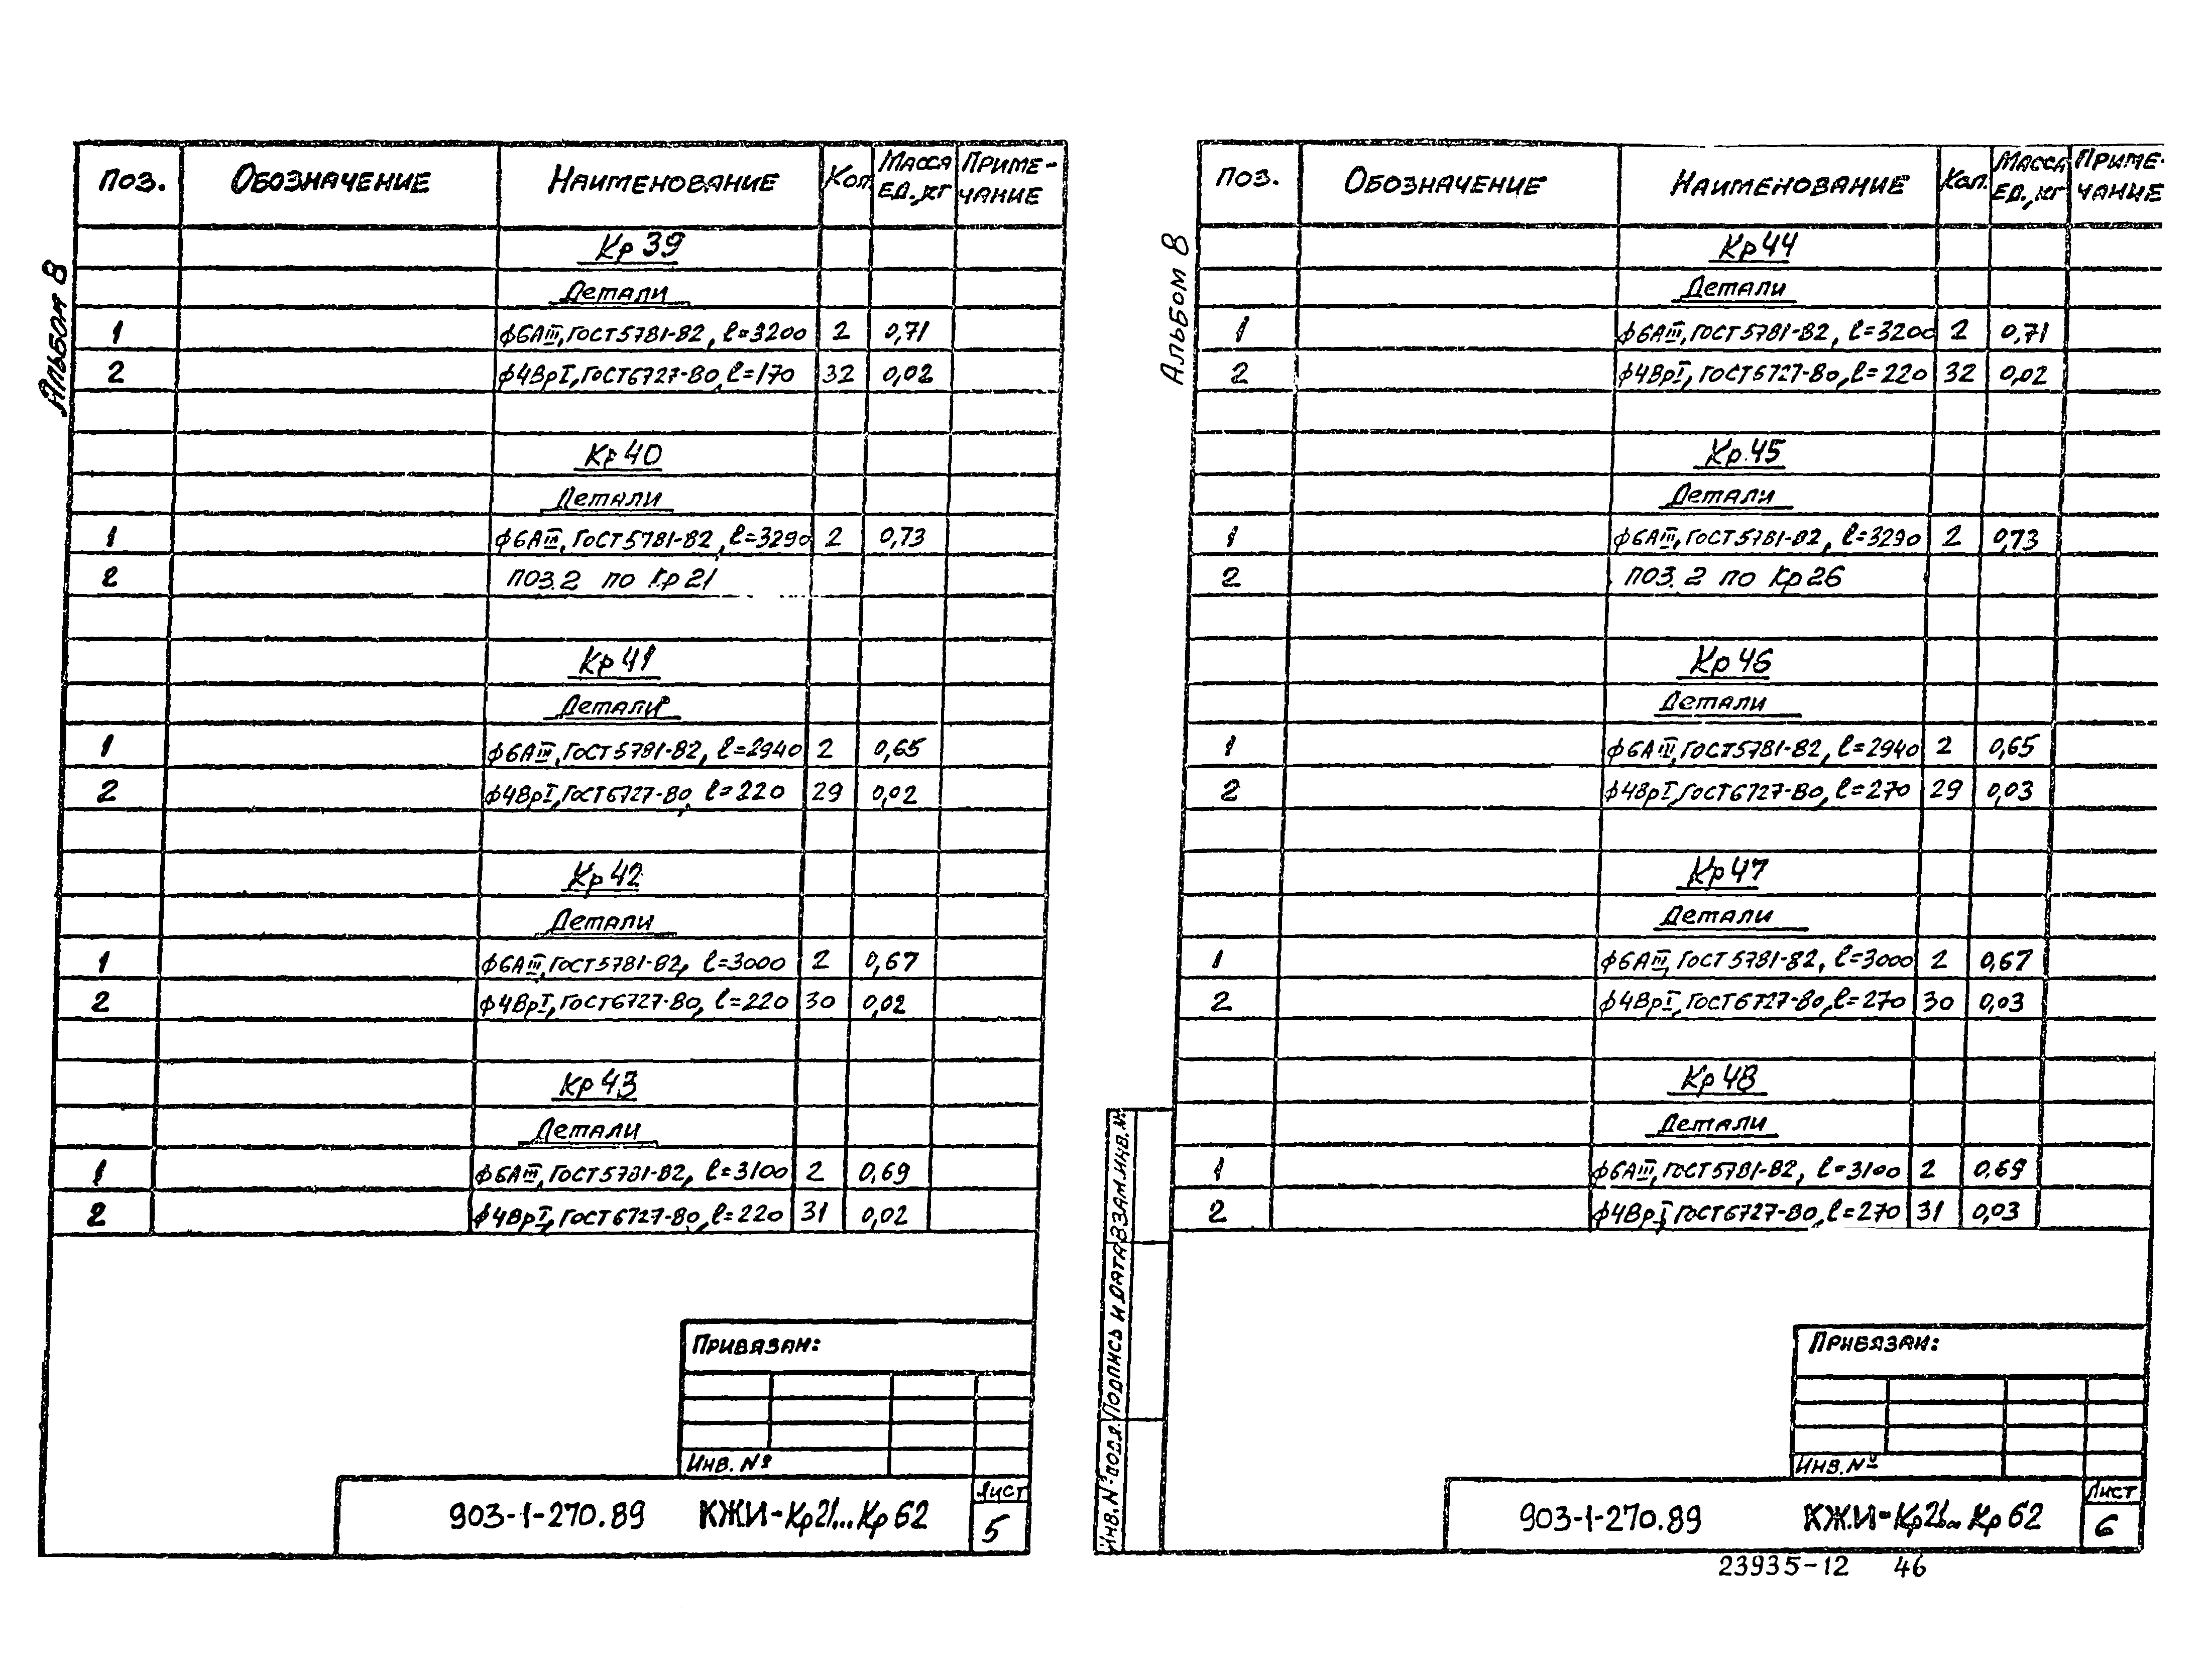 Альбом 8
Поз. Обозначение Наименование Кол. Масса ед., кг Примечание
Кр 39
Детали
1 ф6АIII, ГОСТ 5781-82, l=3200 2 0,71
2 ф4ВрI, ГОСТ 6727-80, l=170 32 0,02
Кр 40
Детали
1 ф6АIII, ГОСТ 5781-82, l=3290 2 0,73
2 поз. 2 по Кр 21
Кр 41
Детали
1 ф6АIII, ГОСТ 5781-82, l=2940 2 0,65
2 ф4ВрI, ГОСТ 6727-80, l=220 29 0,02
Кр 42
Детали
1 ф6АIII, ГОСТ 5781-82, l=3000 2 0,67
2 ф4ВрI, ГОСТ 6727-80, l=220 30 0,02
Кр 43
Детали
1 ф6АIII, ГОСТ 5781-82, l=3100 2 0,69
2 ф4ВрI, ГОСТ 6727-80, l=220 31 0,02
Привязан:
Инв. №
903-1-270.89 КЖИ-Кр21...Кр 62
Лист
5
Альбом 8
Поз. Обозначение Наименование Кол. Масса ед., кг Примечание
Кр 44
Детали
1 ф6АIII, ГОСТ 5781-82, l=3200 2 0,71
2 ф4ВрI, ГОСТ 6727-80, l=220 32 0,02
Кр 45
Детали
1 ф6АIII, ГОСТ 5781-82, l=3290 2 0,73
2 поз. 2 по Кр 26
Кр 46
Детали
1 ф6АIII, ГОСТ 5781-82, l=2940 2 0,65
2 ф4ВрI, ГОСТ 6727-80, l=270 29 0,03
Кр 47
Детали
1 ф6АIII, ГОСТ 5781-82, l=3000 2 0,67
2 ф4ВрI, ГОСТ 6727-80, l=270 30 0,03
Кр 48
Детали
1 ф6АIII, ГОСТ 5781-82, l=3100 2 0,69
2 ф4ВрI, ГОСТ 6727-80, l=270 31 0,03
Инв. № подл. Подпись и дата Взам. инв. №
Привязан:
Инв. №
903-1-270.89 КЖИ-Кр21...Кр 62
Лист
6
23935-12 46